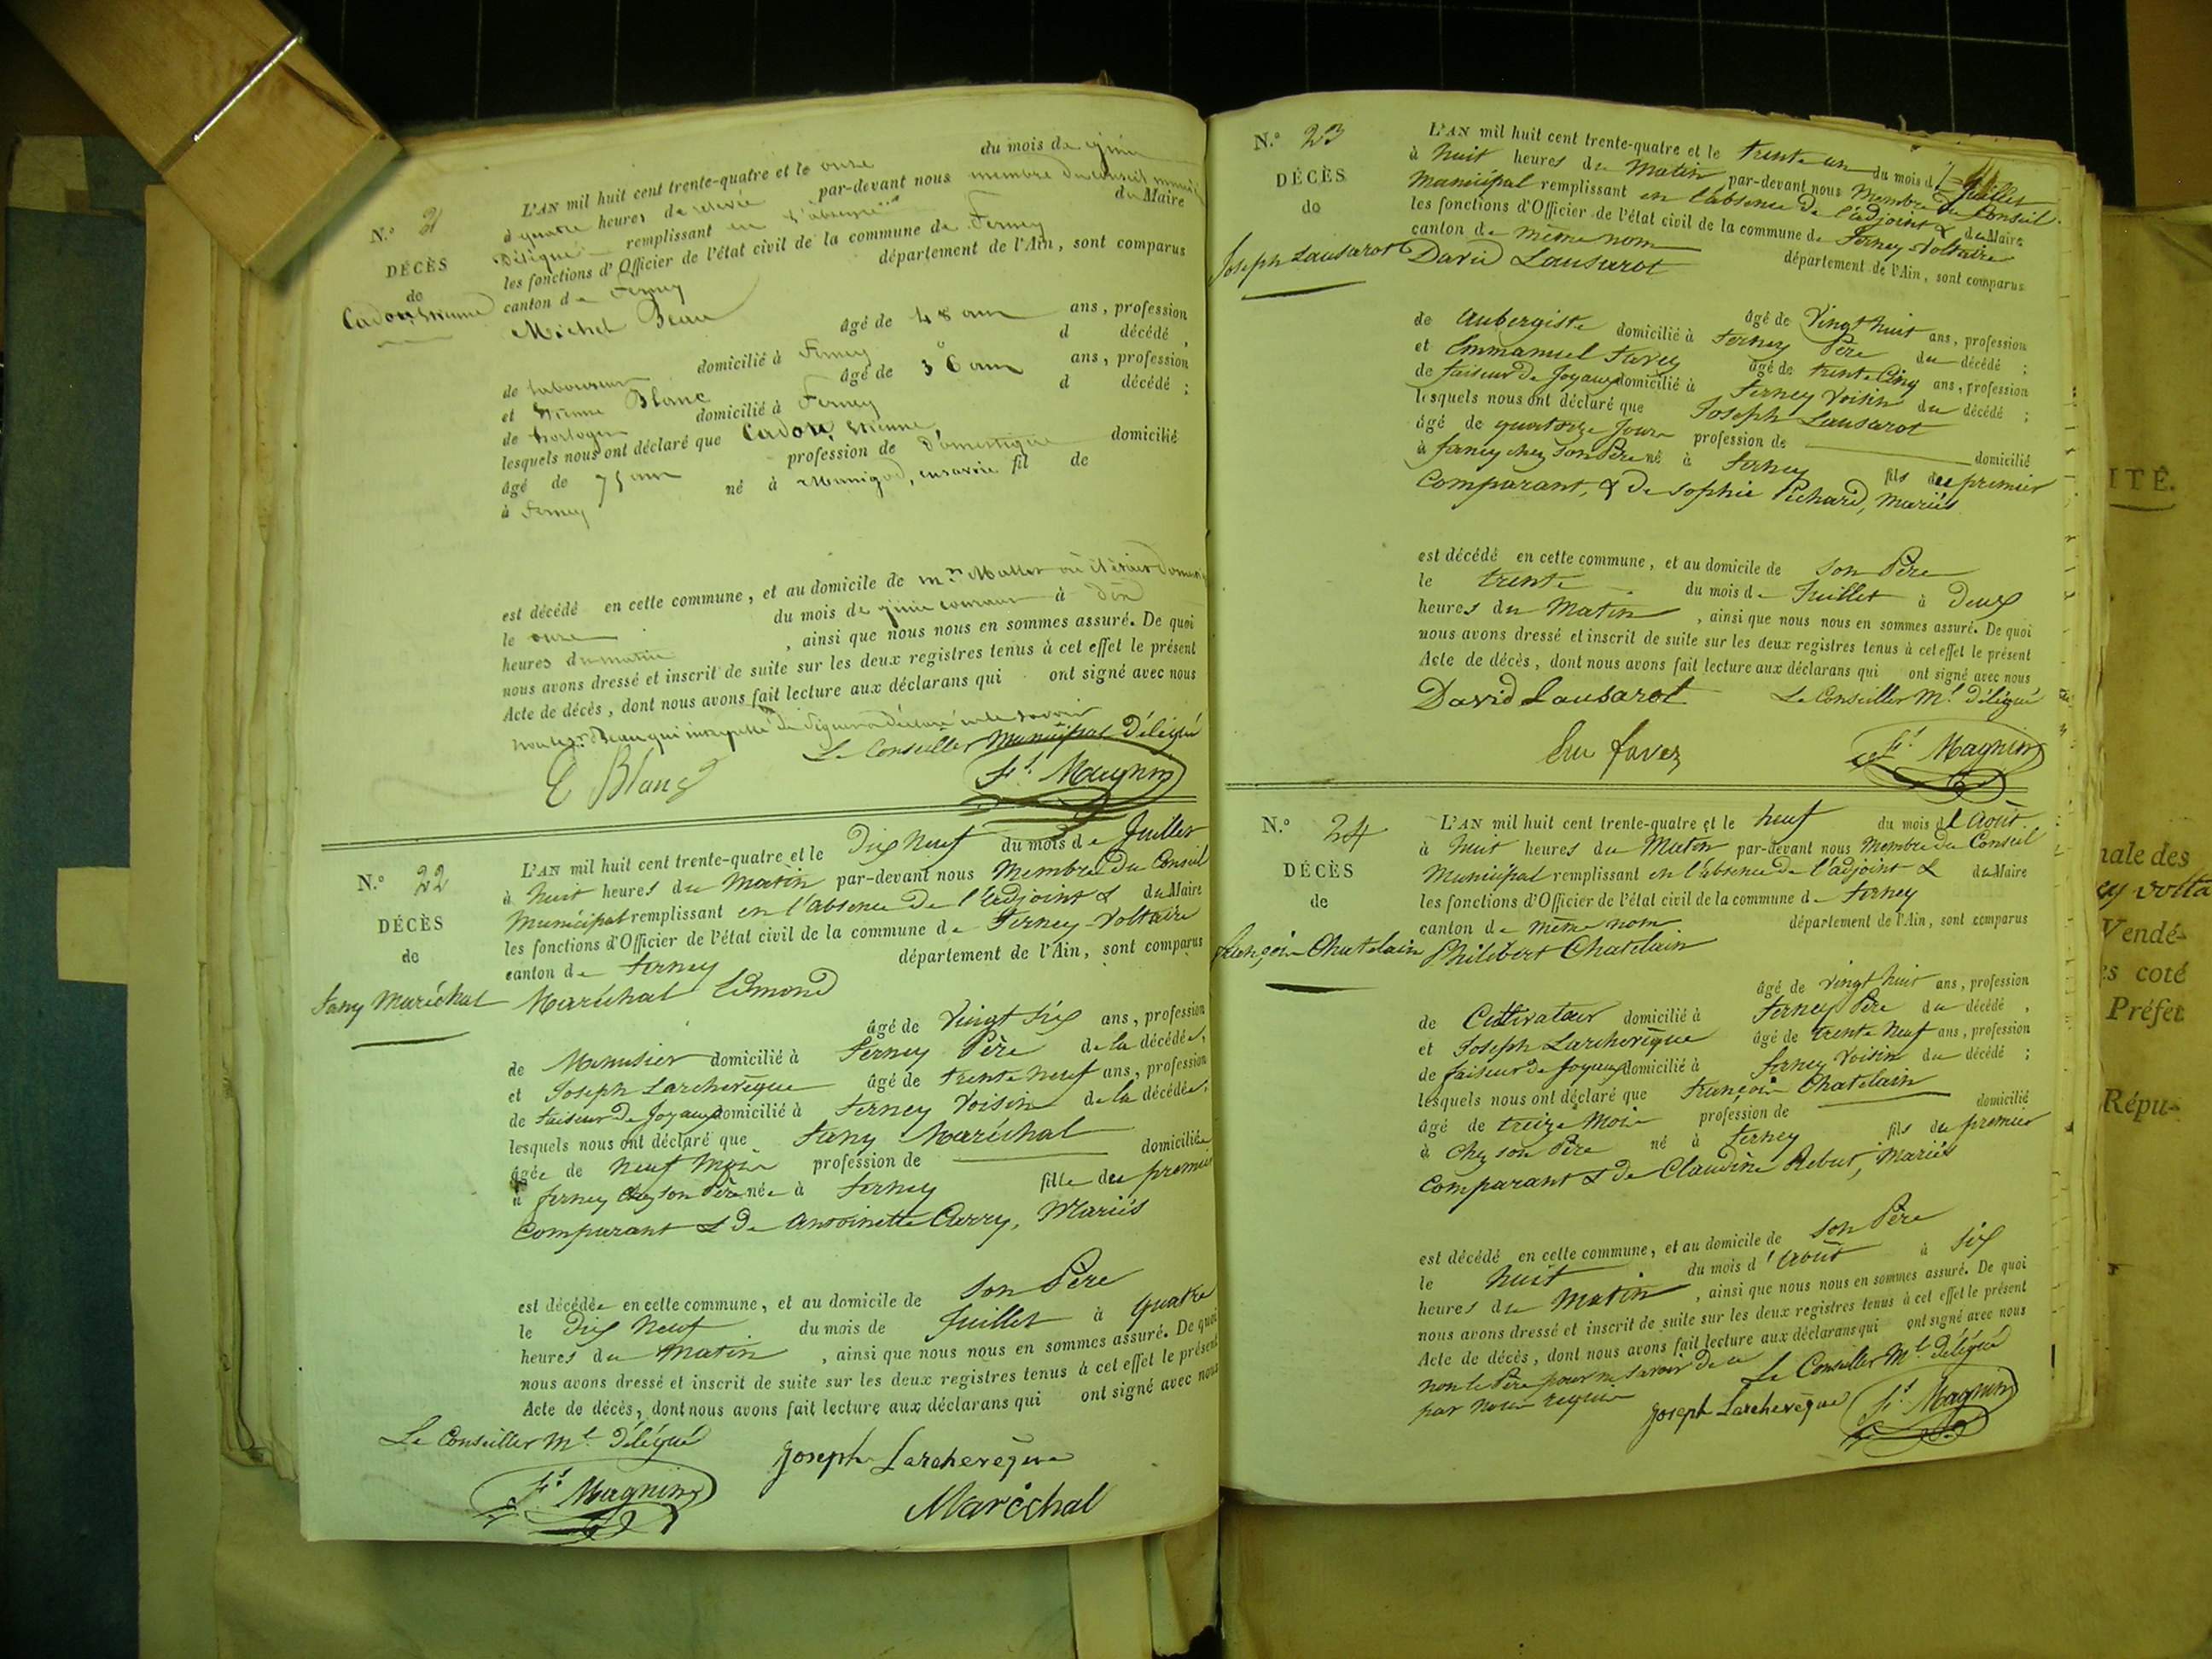 N.º 21
DÉCÈS
de
Cadoux Etienne
L'AN mil huit cent trente-quatre et le onze du mois de juin
à quatre heures de relevée par-devant nous membre du conseil
délégué remplissant en l'absence du Maire
les fonctions d'Officier de l'état civil de la commune de Ferney
canton de Ferney département de l'Ain, sont comparus
Michel Beau
âgé de 48 ans ans, profession
de laboureur domicilié à Ferney d décédé,
et Etienne Blanc âgé de 36 ans ans, profession
de horloger domicilié à Ferney d décédé;
lesquels nous ont déclaré que Cadoux Etienne
âgé de 75 ans profession de domestique domicilié
à Ferney né à Manigod, en savoie fil de
est décédé en cette commune, et au domicile de mr Mallet où il était
le onze du mois de juin courant à
heures du matin, ainsi que nous nous en sommes assuré. De quoi
nous avons dressé et inscrit de suite sur les deux registres tenus à cet effet le présent
Acte de décès, dont nous avons fait lecture aux déclarans qui ont signé avec nous
Beau qui interpellé de signer a déclaré ne le savoir
Le Conseiller Municipal Délégué
E Blanc
Ft. Magnin
N.º 22
DÉCÈS
de
Fany Maréchal
L'AN mil huit cent trente-quatre et le Dix Neuf du mois de Juillet
à huit heures du Matin par-devant nous Membre du Conseil
Municipal remplissant en l'absence de l'adjoint & du Maire
les fonctions d'Officier de l'état civil de la commune de Ferney-Voltaire
canton de Ferney département de l'Ain, sont comparus
Maréchal Edmond
âgé de Vingt Six ans, profession
de Menuisier domicilié à Ferney Père de la décédée,
et Joseph Larchevêque âgé de trente neuf ans, profession
de faiseur de Joyaux domicilié à Ferney Voisin de la décédée;
lesquels nous ont déclaré que Fany Maréchal
âgée de Neuf Mois profession de domiciliée
à ferney chez son Père née à Ferney fille du premier
Comparant & de Antoinette Curry, Mariés
est décédée en cette commune, et au domicile de Son Père
le Dix Neuf du mois de Juillet à Quatre
heures du Matin, ainsi que nous nous en sommes assuré. De quoi
nous avons dressé et inscrit de suite sur les deux registres tenus à cet effet le présent
Acte de décès, dont nous avons fait lecture aux déclarans qui ont signé avec nous
Le Conseiller Mt. Délégué
Joseph Larchevêque
Ft. Magnin
Maréchal
N.º 23
DÉCÈS
de
Joseph Lausarot
L'AN mil huit cent trente-quatre et le trente un du mois de Juillet
à huit heures du Matin par-devant nous Membre du Conseil
Municipal remplissant en l'absence de l'adjoint & du Maire
les fonctions d'Officier de l'état civil de la commune de Ferney-Voltaire
canton de même nom département de l'Ain, sont comparus
David Lausarot
âgé de Vingt huit ans, profession
de Aubergiste domicilié à Ferney Père du décédé;
et Emmanuel Favez âgé de trente Cinq ans, profession
de faiseur de Joyaux domicilié à Ferney Voisin du décédé;
lesquels nous ont déclaré que Joseph Lausarot
âgé de quatorze Jours profession de domicilié
à ferney chez son Père né à Ferney fils du premier
Comparant, & de Sophie Pichard, Mariés
est décédé en cette commune, et au domicile de Son Père
le trente du mois de Juillet à Deux
heures du Matin, ainsi que nous nous en sommes assuré. De quoi
nous avons dressé et inscrit de suite sur les deux registres tenus à cet effet le présent
Acte de décès, dont nous avons fait lecture aux déclarans qui ont signé avec nous
David Lausarot Le Conseiller Mt. Délégué
Em favez Ft. Magnin
N.º 24
DÉCÈS
de
François Chatelain
L'AN mil huit cent trente-quatre et le neuf du mois d'Août
à huit heures du Matin par-devant nous Membre du Conseil
Municipal remplissant en l'absence de l'adjoint & du Maire
les fonctions d'Officier de l'état civil de la commune de Ferney
canton de même nom département de l'Ain, sont comparus
Philibert Chatelain
âgé de vingt huit ans, profession
de Cultivateur domicilié à Ferney Père du décédé,
et Joseph Larchevêque âgé de trente Neuf ans, profession
de faiseur de Joyaux domicilié à Ferney Voisin du décédé;
lesquels nous ont déclaré que François Chatelain
âgé de treize Mois profession de domicilié
à chez son Père né à Ferney fils du premier
Comparant & de Claudine Rebut, Mariés
est décédé en cette commune, et au domicile de Son Père
le huit du mois d'Août à Six
heures du Matin, ainsi que nous nous en sommes assuré. De quoi
nous avons dressé et inscrit de suite sur les deux registres tenus à cet effet le présent
Acte de décès, dont nous avons fait lecture aux déclarans qui ont signé avec nous
non le Père pour ne savoir de ce Le Conseiller Mt. Délégué
par nous requis Joseph Larchevêque Ft. Magnin
ITÉ.
nale des
ey volta
Vendé-
es coté
Préfet
Répu-